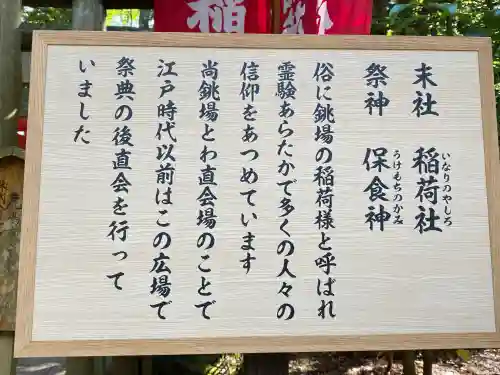 末社 稲荷社
いなりのやしろ
祭神 保食神
うけもちのかみ
俗に銚場の稲荷様と呼ばれ
霊験あらたかで多くの人々の
信仰をあつめています
尚銚場とわ直会場のことで
江戸時代以前はこの広場で
祭典の後直会を行って
いました
稲